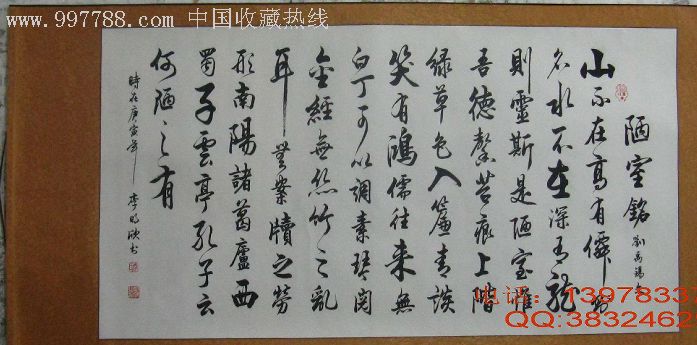 www.997788.com 中国收藏热线
陋室銘 劉禹錫
山不在高有僊則
名水不在深有龍
則靈斯是陋室惟
吾德馨苔痕上階
緑草色入簾青談
笑有鴻儒往來無
白丁可以調素琴閱
金經無絲竹之亂
耳無案牘之勞
形南陽諸葛廬西
蜀子雲亭孔子云
何陋之有
時在庚寅年 李明书
电话：1397833
QQ:3832462